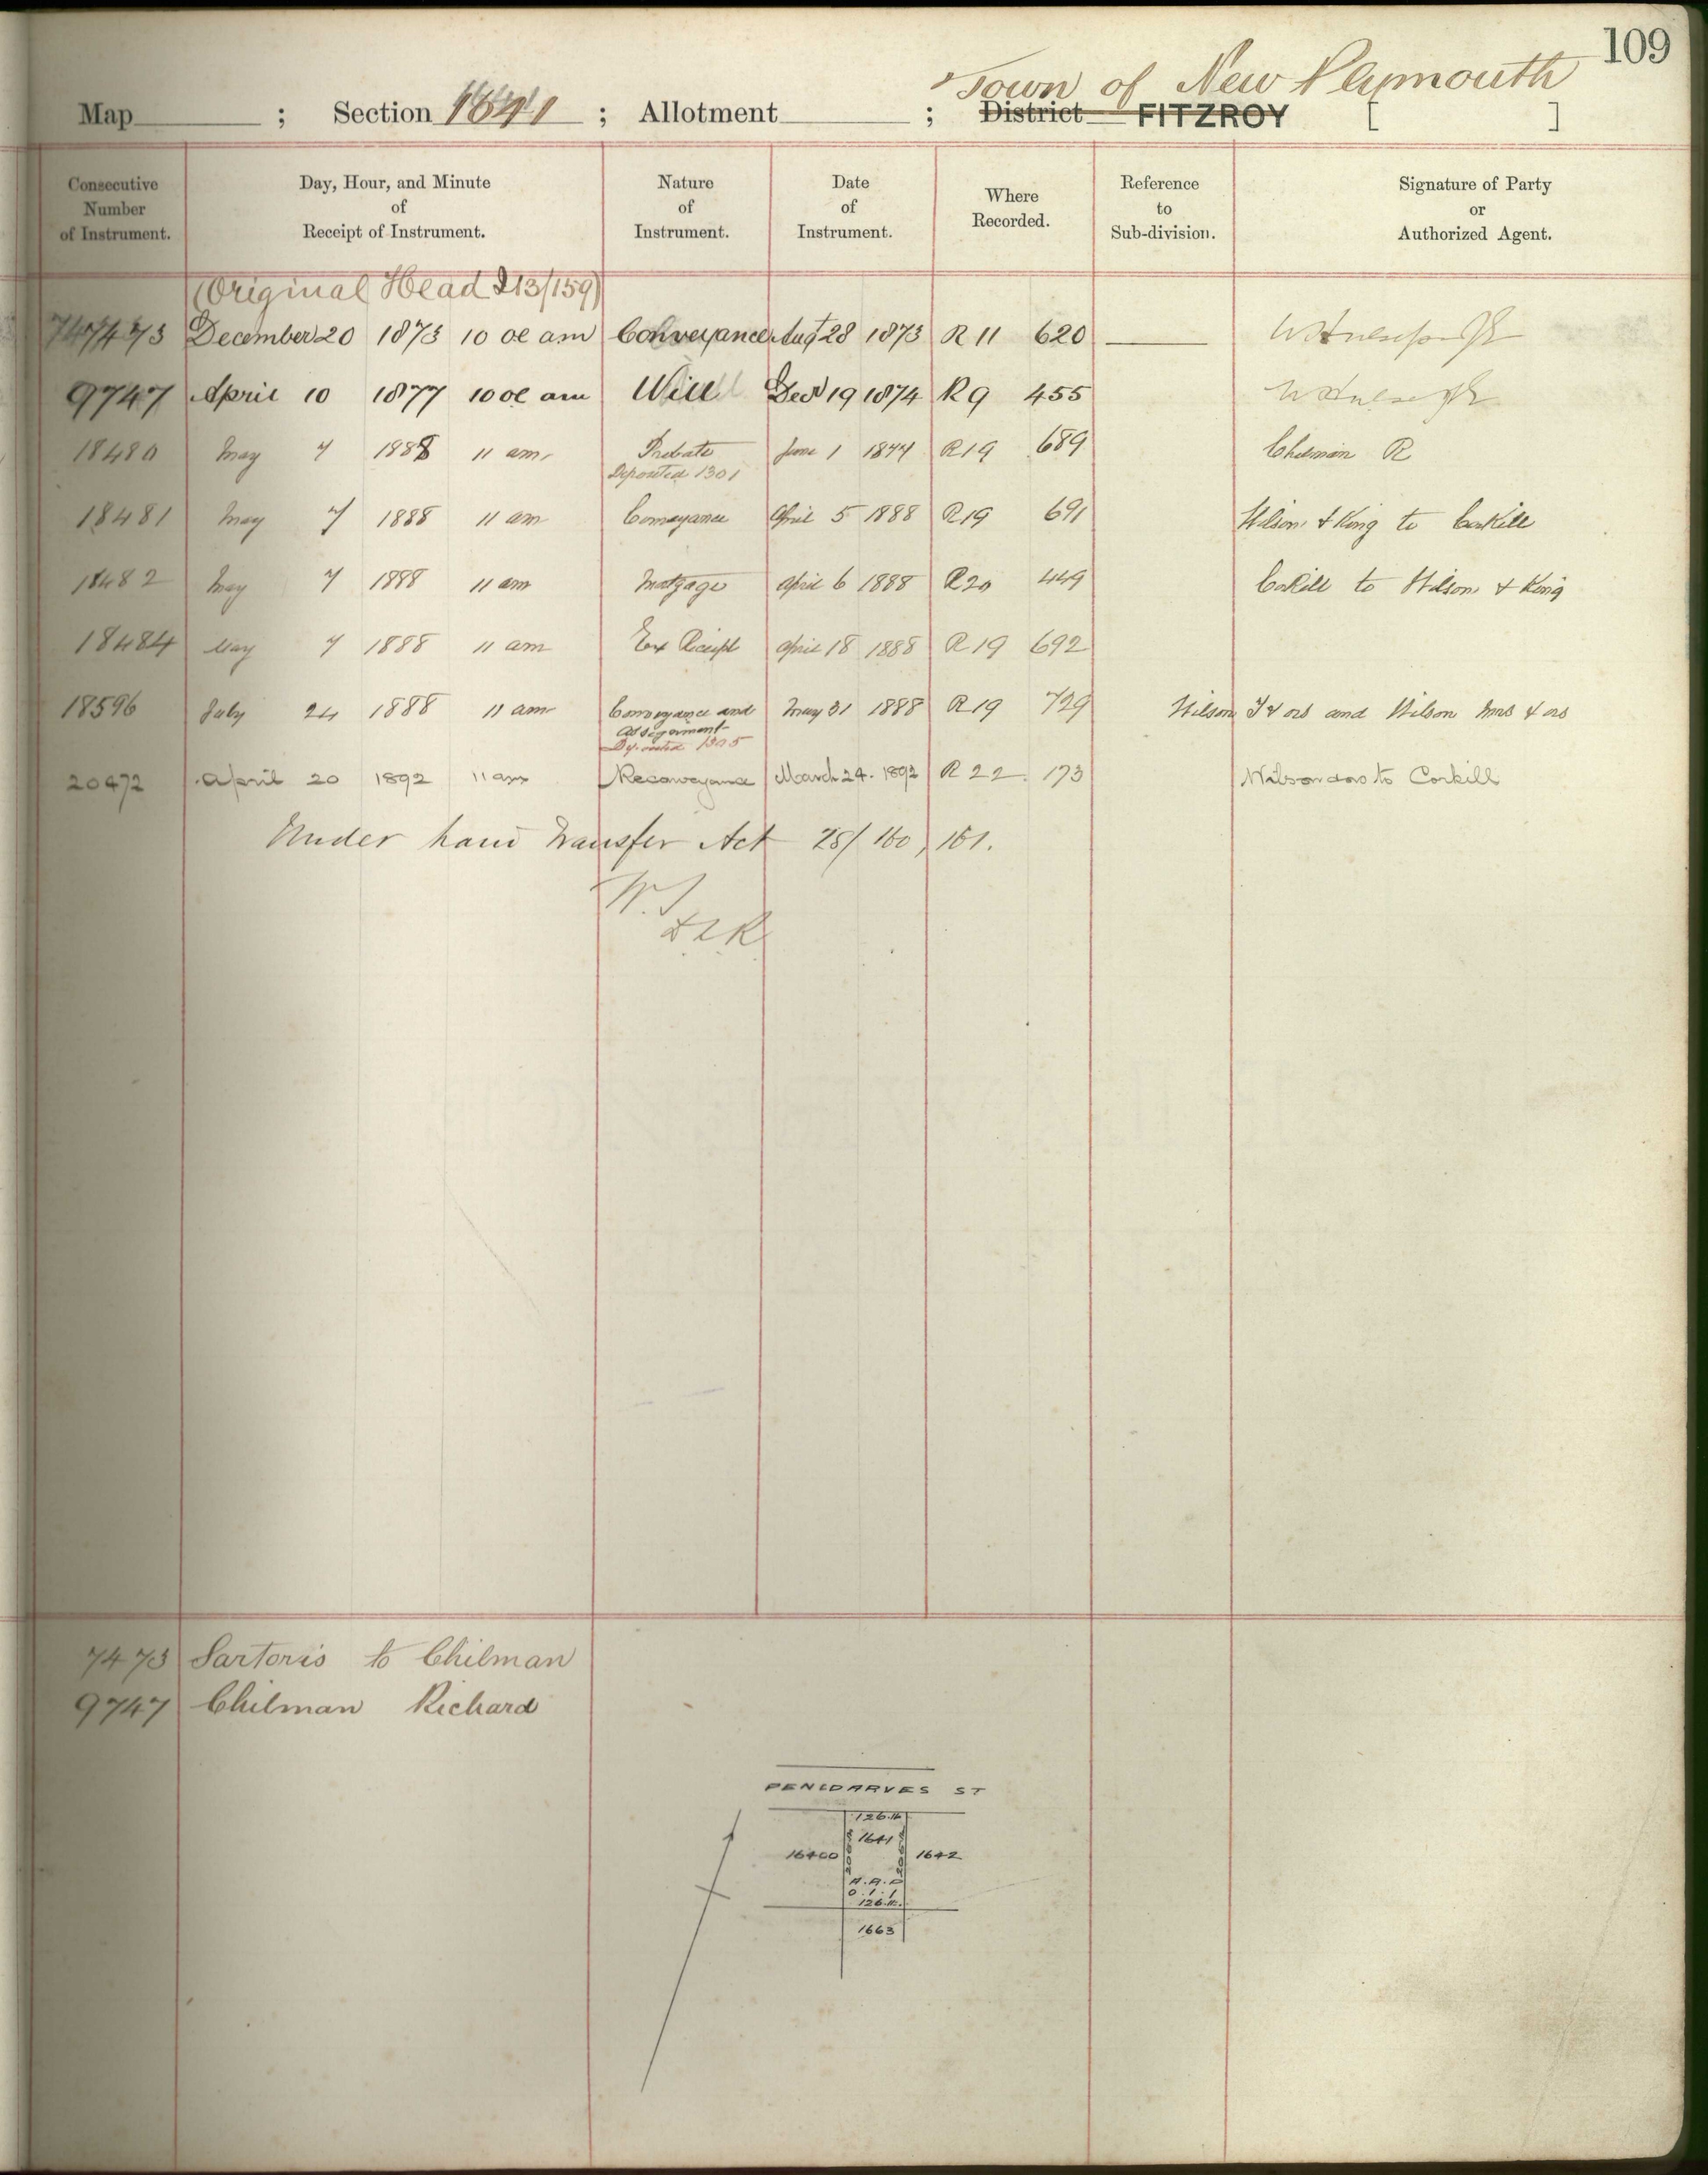 109
Town of New Plymouth
Map ; Section 1641 ; Allotment ; District FITZROY [ ]
Consecutive Number of Instrument.
Day, Hour, and Minute of Receipt of Instrument.
Nature of Instrument.
Date of Instrument.
Where Recorded.
Reference to Sub-division.
Signature of Party or Authorized Agent.
(Original Head 213/159)
7473 December 20 1873 10 oc am Conveyance Aug 28 1873 R 11 620
9747 April 10 1877 10 oc am Will Dec 19 1874 R 9 455
18480 May 7 1888 11 am. Probate June 1 1877 R 19 689 Chilman R
Deposited 1301
18481 May 7 1888 11 am Conveyance April 5 1888 R 19 691 Wilson & King to Corkill
18482 May 7 1888 11 am Mortgage April 6 1888 R 20 449 Corkill to Wilson & King
18484 May 7 1888 11 am Receipt April 18 1888 R 19 692
18596 July 24 1888 11 am Conveyance and May 31 1888 R 19 729 Wilson J & ors and Wilson Mrs & ors
assignment
Deposited
20472 April 20 1892 11 am Reconveyance March 24. 1892 R 22. 173 Wilson & ors to Corkill
Under Land Transfer Act 28/160, 161.
7473 Sartoris to Chilman
9747 Chilman Richard
PENDARVES ST
126.4
1641
1640 1642
A.R.P.
0.1.1
126.4
1663